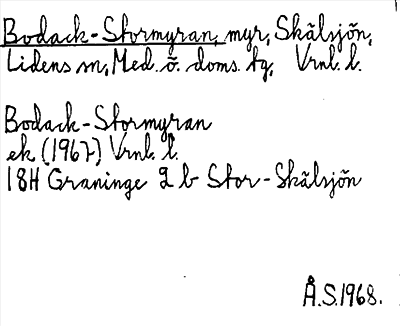 Bodack-Stormyran, myr, Skälsjön,
Lidens sn, Med. ö. doms. tg, Vrnl. l.
Bodack-Stormyran
ek (1967) Vrnl. l.
18H Graninge 2 b Stor-Skälsjön
Å.S.1968.